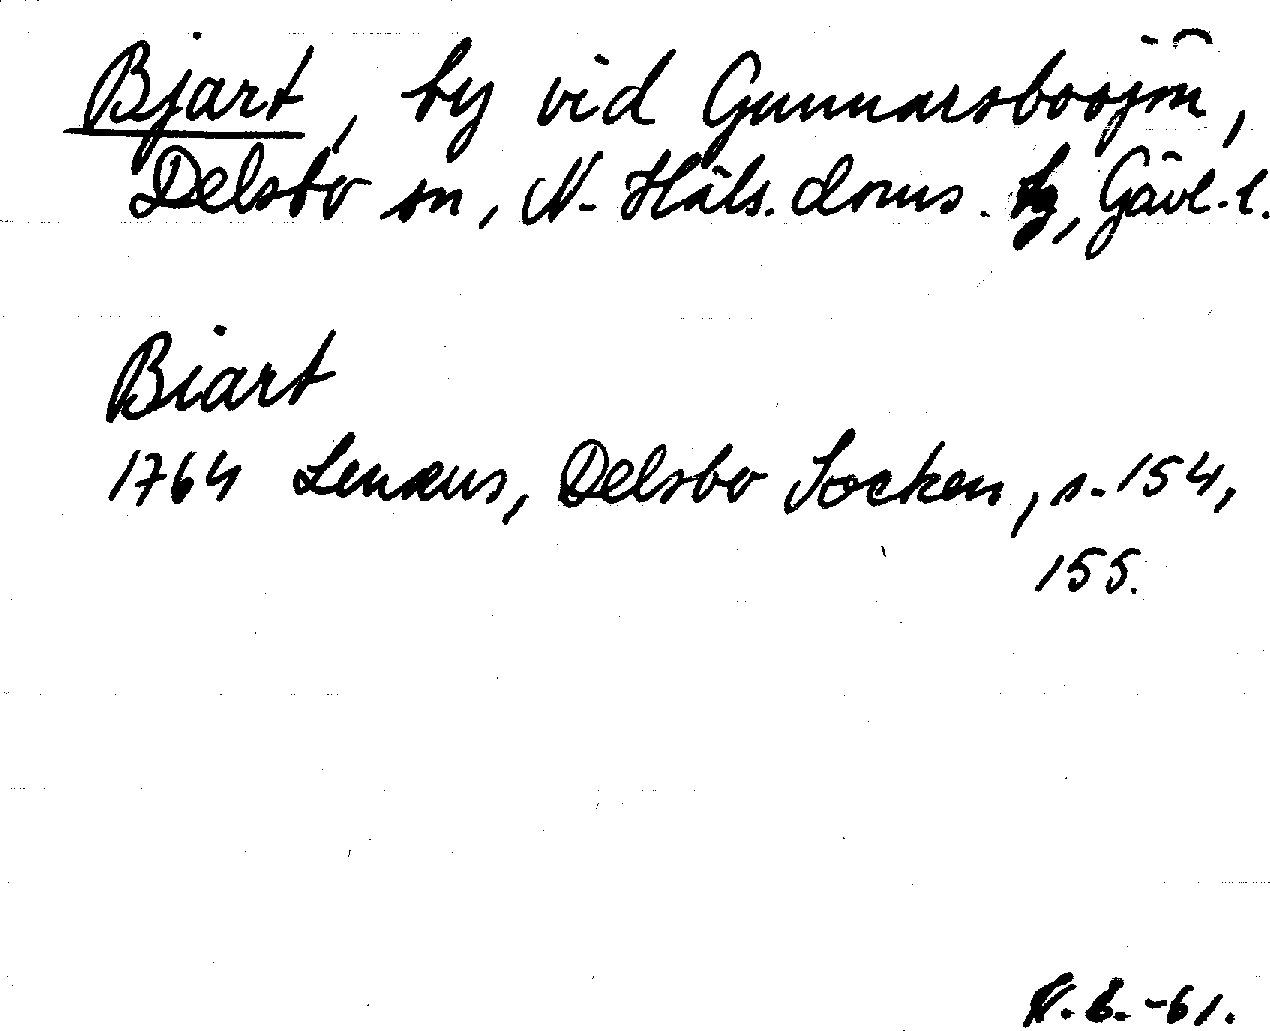 Bjart, by vid Gunnarsbosjön,
Delsbo sn, N. Häls. doms. tg, Gävl. l.
Biart
1764 Lenæus, Delsbo Socken, s. 154,
155.
-61.